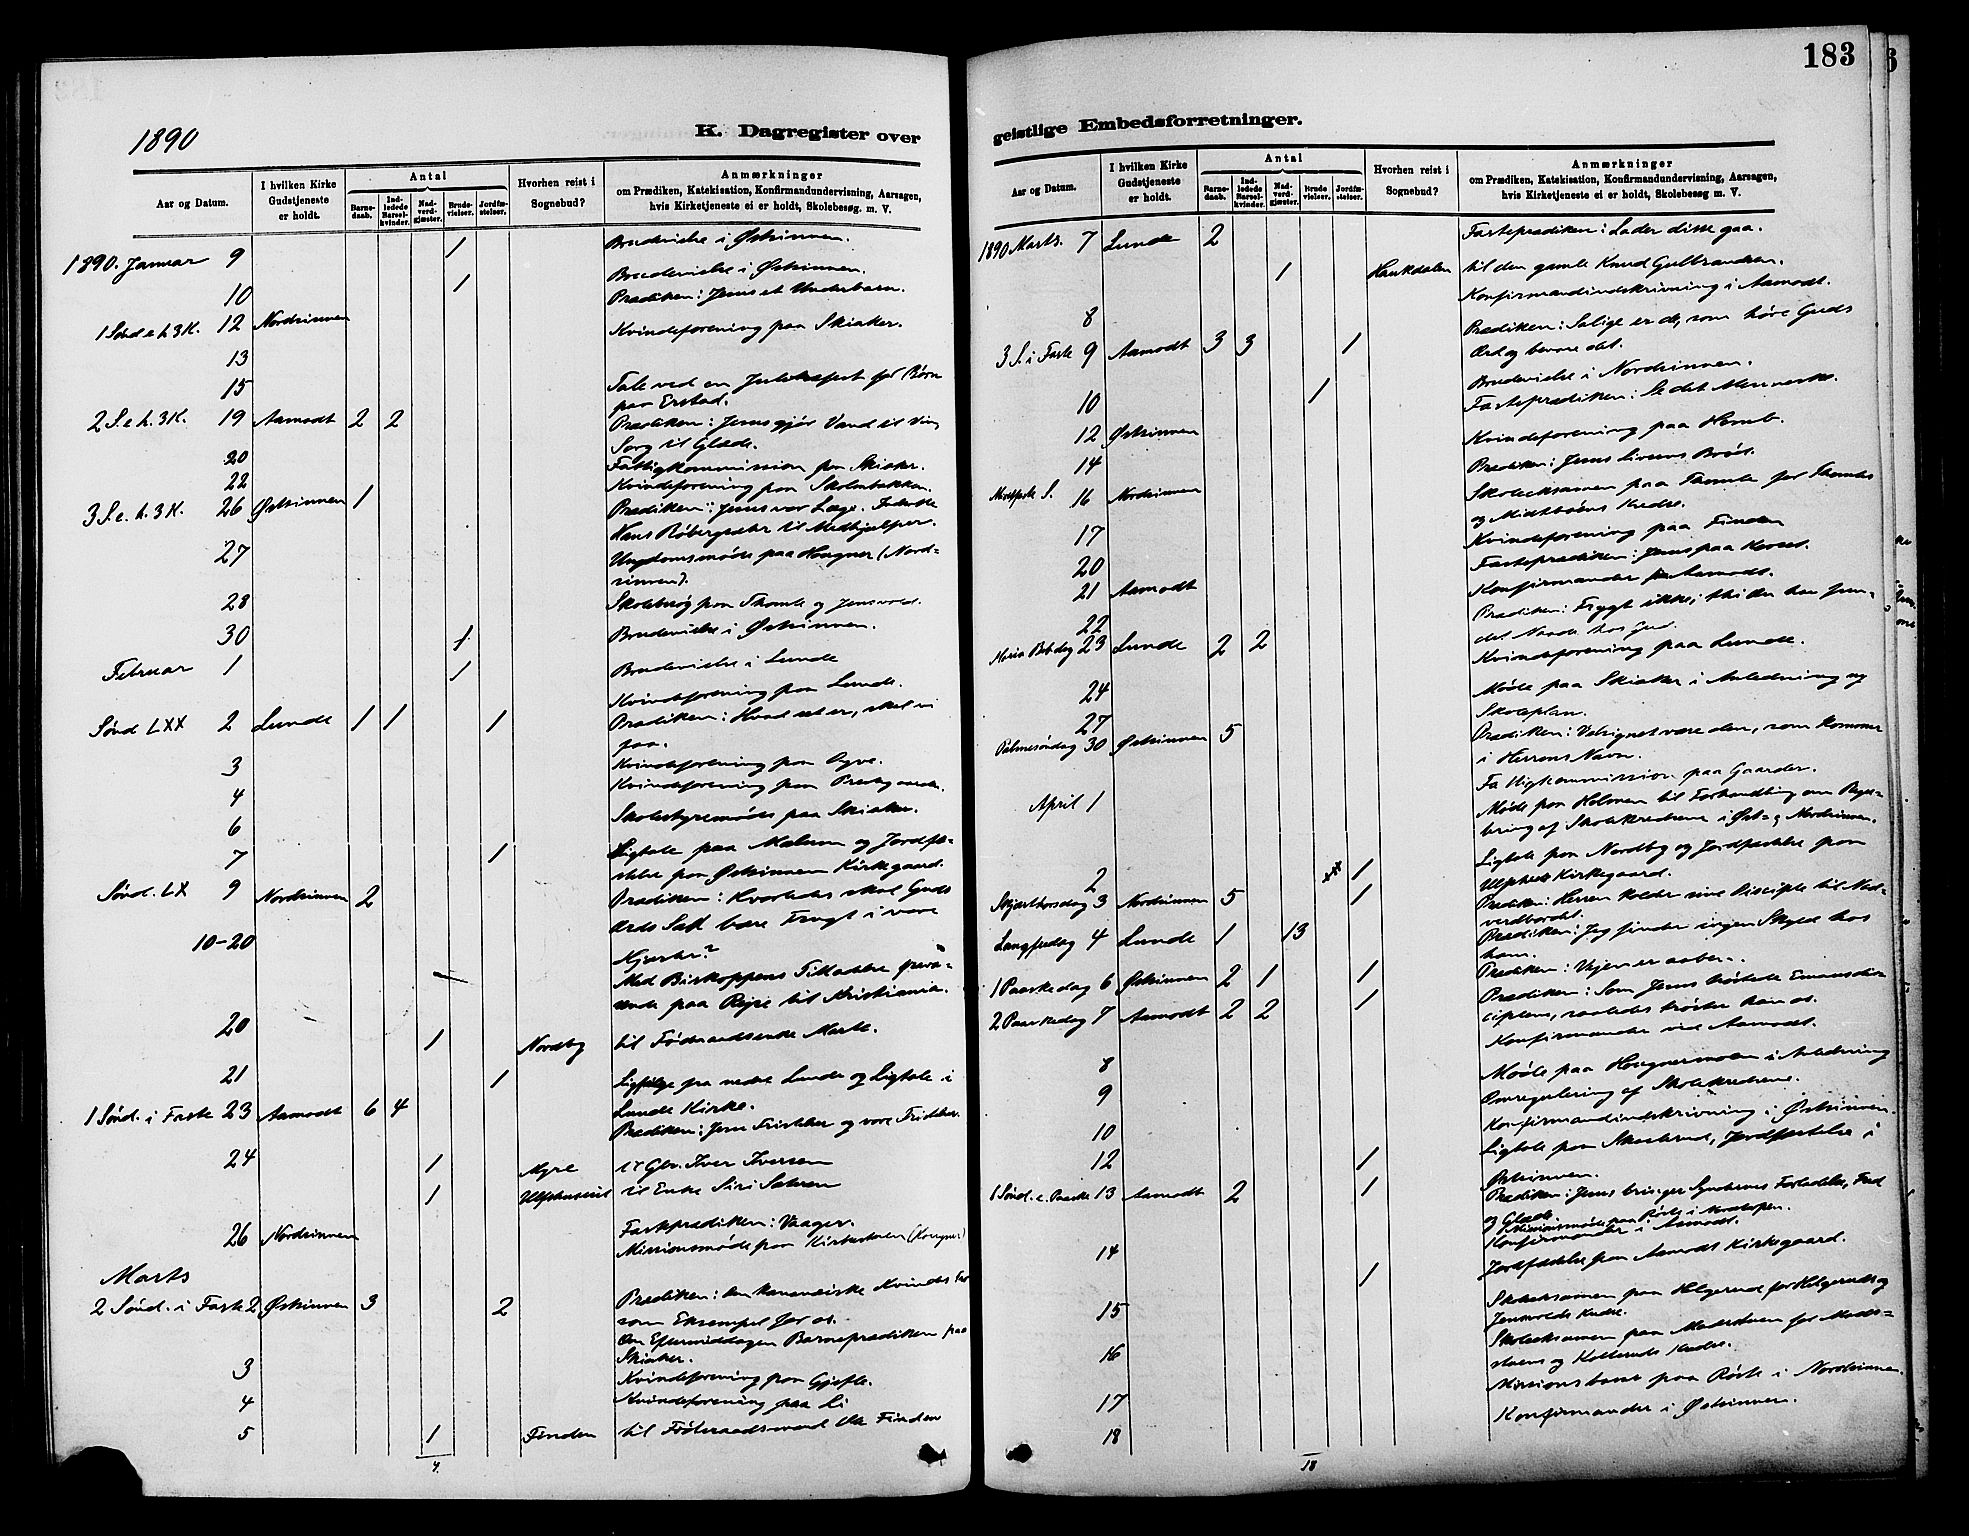 183
1890
K. Dagregister over
Aar og Datum.
I hvilken Kirke Gudstjeneste er holdt.
Antal
Barne-daab.
Ind-ledede Barsel-kvinder.
Nad-verd-gjæster.
Brude-vielser.
Jordfæ-stelser.
Hvorhen reist i Sognebud?
Anmærkninger
om Prædiken, Katekisation, Konfirmandundervisning, Aarsagen,
hvis Kirketjeneste ei er holdt, Skolebesøg m. V.
1890. Januar 9 1 Brudevielse i Østsinnen.
10 1 Brudevielse i Østsinnen.
1 Sønd e. h. 3 K. 12 Nordsinnen Prædiken: Jesus et Underbarn.
13 Kvindeforening paa Skiaker.
15 Tale ved en Juletræfest for Børn
paa Erstad.
2 S. e. h. 3 K. 19 Aamodt 2 2 Prædiken: Jesus gjør Vand til Vin
Sorg til Glæde.
20 Fattigkommission paa Skiaker.
22 Kvindeforening paa Skolebakken.
3 S. e. h. 3 K. 26 Østsinnen 1 Prædiken: Jesus vor Læge.
Hans til Medhjælper.
27 Ungdomsmøde paa Hougner (Nord-
sinnen).
28 Skolebesøg paa Thomle og Jensvold.
30 1 Brudevielse i Østsinnen.
Februar 1 1 Brudevielse i Lunde
Kvindeforening paa Lunde.
Sønd LXX 2 Lunde 1 1 1 Prædiken: Hvad ret er, skal vi
faa.
3 Kvindeforening paa
4 Kvindeforening paa
6 Skolestyremøde paa Skiaker.
7 1 Ligtale paa Malum og Jordfæ-
stelse paa Østsinnen Kirkegaard.
Sønd. LX 9 Nordsinnen 2 Prædiken: Hvorledes skal Guds
Ords Sæd bære Frugt i vore
Hjerter?
10-20 Med Biskoppens Tilladelse fravæ-
rende paa Rejse til Kristiania.
20 1 Nordby til Føderaadsenke Marte.
21 1 Ligfølge fra nedre Lunde og Ligtale i
Lunde Kirke.
1 Sønd. i Faste 23 Aamodt 6 4 Prædiken: Jesu Fristelser og vore Fristelser.
24 1 Myre til Gbr. Iver Iversen
1 til Enke Siri
26 Nordsinnen Fasteprædiken: Vaager.
Missionsmøde paa Kirkestuen (Hougner)
Marts
2 Sønd. i Faste 2 Østsinnen 3 2 Prædiken: den kananæiske Kvindes Tro
som Eksempel for os.
Om Eftermiddagen Barneprædiken paa
Skiaker.
3 Kvindeforening paa Gjefle.
4 Kvindeforening paa Li
5 1 Finden til Føderaadsmand Ole Finden
4.
geistlige Embedsforretninger.
Aar og Datum.
I hvilken Kirke Gudstjeneste er holdt.
Antal
Barne-daab.
Ind-ledede Barsel-kvinder.
Nad-verd-gjæster.
Brude-vielser.
Jordfæ-stelser.
Hvorhen reist i Sognebud?
Anmærkninger
om Prædiken, Katekisation, Konfirmandundervisning, Aarsagen,
hvis Kirketjeneste ei er holdt, Skolebesøg m. V.
1890 Marts. 7 Lunde 2 Fasteprædiken: Lader disse gaa.
1 Haukdalen til den gamle Knud Gulbrandsen.
8 Konfirmandindskrivning i Aamodt.
3 S. i Faste 9 Aamodt 3 3 1 Prædiken: Salige er de, som høre Guds
Ord og bevare det.
10 1 Brudevielse i Nordsinnen.
12 Østsinnen Fasteprædiken: Se det Menneske.
14 Kvindeforening paa
Midtfaste S. 16 Nordsinnen Prædiken: Jesus Livsens Brød.
17 Skoleeksamen paa Thomle for Thomles
og Midtbøens Kredse.
20 Kvindeforening paa Finden
21 Aamodt Fasteprædiken: Jesus paa Korset.
22 Konfirmander fra Aamodt.
Maria Bebdag 23 Lunde 2 2 Prædiken: Frygt ikke; thi du har fun-
det Naade hos Gud.
24 Kvindeforening paa Lunde.
27 Møde paa Skiaker i Anledning af
Skoleplan.
Palmesøndag 30 Østsinnen 5 Prædiken: Velsignet være den, som kommer
i Herrens Navn.
April 1 Fattigkommission paa Gaarder.
Møde paa Holmen til Forhandling om Regu-
lering af Skolekredsene i Øst- og Nordsinnen.
2 1 Ligtale paa Nordby og Jordfæstelse paa
Kirkegaard.
Skjærthorsdag 3 Nordsinnen 5 1 Prædiken: Herren kalder sine Disciple til Nad-
verdbordet.
Langfredag 4 Lunde 1 13 Prædiken: Jeg finder ingen Skyld hos
ham.
1 Paaskedag 6 Østsinnen 2 1 1 Prædiken: Vejen er aaben.
2 Paaskedag 7 Aamodt 2 2 1 Prædiken: Som Jesus trøstede Emausdis-
ciplene, saaledes trøster han os.
8 Konfirmander ved Aamodt.
9 Møde paa Hougnermoen i Anledning
Omregulering af Skolekredsene.
10 Konfirmandindskrivning i Østsinnen.
12 1 Ligtale paa Jordfæstelse i
Østsinnen.
1 Sønd. e. Paaske 13 Aamodt 2 1 Prædiken: Jesus bringer Syndernes Forladelse, Fred
og Glæde.
Missionsmøde paa Røste i
14 Konfirmander i Aamodt.
1 Jordfæstelse paa Aamodt Kirkegaard.
15 Skoleeksamen paa Helgerud for Helgeruds og
Jensvolds Kredse.
16 Skoleeksamen paa for
og Kredse.
17 Missionsbasar paa Røste i Nordsinnen.
18 Konfirmander i Østsinnen.
18